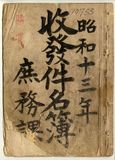 10753
昭和十三年
收發件名簿
庶務課